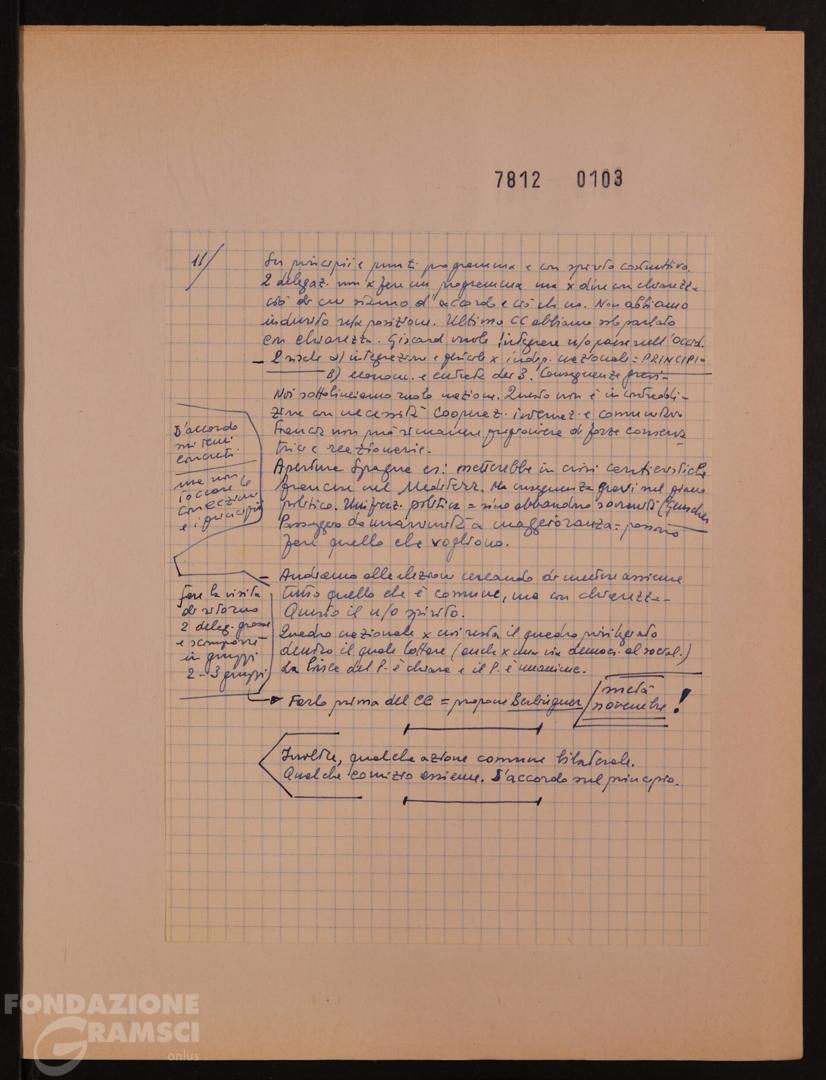 7812 0103
11/
Su principi e punti programma e con spirito costruttivo.
2 delegaz. non x fare un programma ma x dire con chiarezza
ciò di cui siamo d'accordo e ciò che no. Non abbiamo
indurito n/a posizione. Ultimo CC abbiamo solo parlato
con chiarezza. Giscard vuole integrare n/o paese nell'occid.
– 2 rischi a) integrazione e pericolo x indip. nazionale = PRINCIPI
B) econom. e entrata dei 3. Conseguenze gravi –
Noi sottolineiamo ruolo nazione. Questo non è in contraddi-
zione con necessità cooperaz. internaz. e comunitaria
Francia non può rimanere prigioniera di forze conserva
trici e reazionarie.
Apertura Spagna es: metterebbe in crisi
francesi nel Mediterr. Ma conseguenza gravi sul piano
politico. Unificaz. politica = sino abbandono sovranità (Genscher
Passaggio da unanimità a maggioranza = possono
fare quello che vogliono.
D'accordo
su temi
concreti
ma non
toccare le
convinzioni
e i principii
– Andremo alle elezioni cercando di mettere assieme
tutto quello che è comune, ma con chiarezza –
Questo il n/o spirito.
Quadro nazionale x noi resta il quadro privilegiato
dentro il quale lottare (anche x una via democ. al social.)
La linea del P. è chiara e il P. è unanime.
fare la visita
di ritorno
2 deleg. grosse
e scomporsi
in gruppi
2 - 3 gruppi
Farlo prima del CC = propone Berlinguer / metà
novembre !
Inoltre, qualche azione comune bilaterale.
Qualche comizio assieme. D'accordo sul principio.
FONDAZIONE
GRAMSCI
onlus